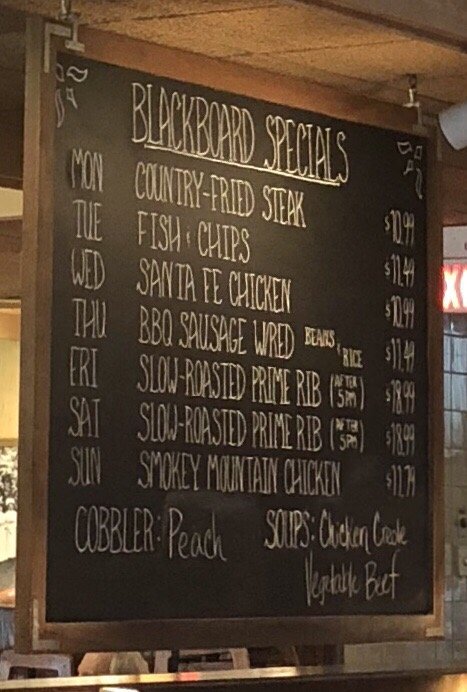 BLACKBOARD SPECIALS
MON COUNTRY-FRIED STEAK $10.99
TUE FISH & CHIPS $11.49
WED SANTA FE CHICKEN $10.99
THU BBQ SAUSAGE W RED BEANS & RICE $11.49
FRI SLOW-ROASTED PRIME RIB (AFTER 5PM) $18.99
SAT SLOW-ROASTED PRIME RIB (AFTER 5PM) $18.99
SUN SMOKEY MOUNTAIN CHICKEN $11.79
COBBLER: Peach SOUPS: Chicken Creole
Vegetable Beef